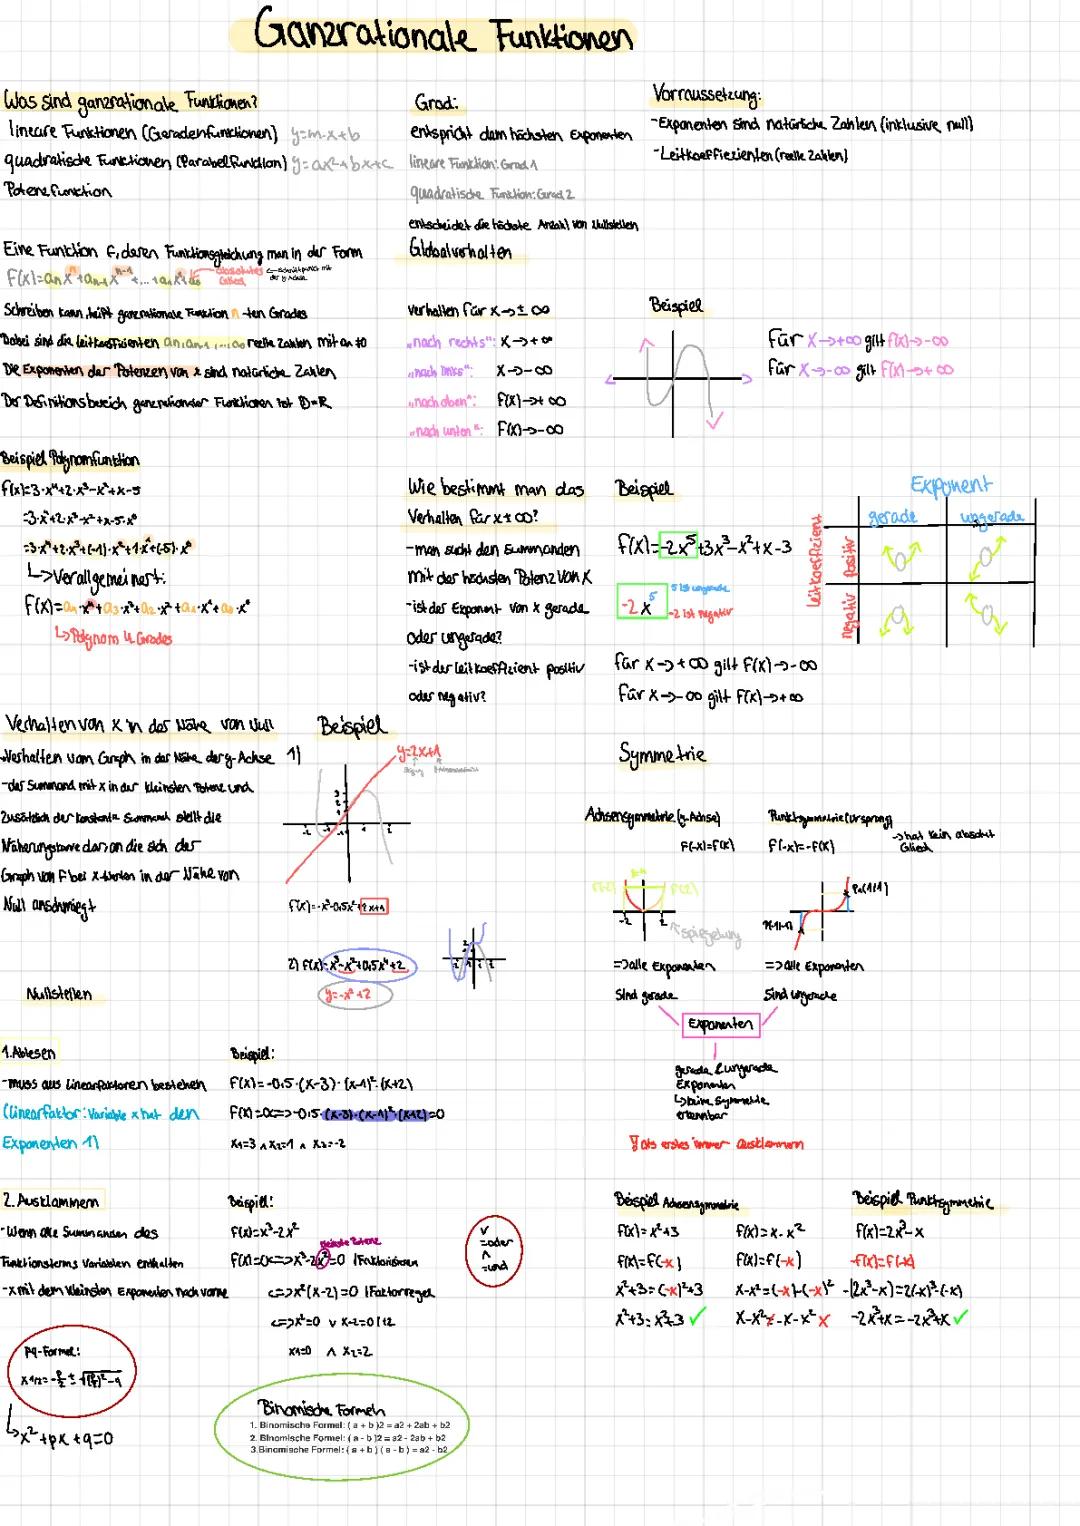 Ganzrationale Funktionen
Was sind ganzrationale Funktionen?
lineare Funktionen (Geradenfunktionen) y=m·x+b
quadratische Funktionen (Parabelfunktion) y=ax²+bx+c
Potenzfunktion
Grad:
entspricht dem höchsten Exponenten
lineare Funktion: Grad 1
quadratische Funktion: Grad 2
entscheidet die höchste Anzahl von Nullstellen
Vorraussetzung:
-Exponenten sind natürliche Zahlen (inklusive null)
-Leitkoeffiezienten (reelle Zahlen)
Eine Funktion f, deren Funktionsgleichung man in der Form
f(x)=aₙxⁿ+aₙ₋₁xⁿ⁻¹+...+a₁x¹+a₀ ← absolutes Glied ← Schnittpunkt mit der y Achse
Schreiben kann, heißt ganzrationale Funktion n-ten Grades
Dabei sind die Leitkoeffizienten aₙ, aₙ₋₁, ..., a₀ reelle Zahlen mit aₙ≠0
Die Exponenten der Potenzen von x sind natürliche Zahlen
Der Definitionsbereich ganzrationaler Funktionen ist D=R
Globalverhalten
verhalten für x→±∞
„nach rechts": x→+∞
„nach links": x→-∞
„nach oben": f(x)→+∞
„nach unten": f(x)→-∞
Beispiel
für x→+∞ gilt f(x)→-∞
für x→-∞ gilt f(x)→+∞
Beispiel Polynomfunktion
f(x)=3·x⁴+2·x³-x²+x-5
=3·x⁴+2·x³-x²+x-5·x⁰
=3·x⁴+2·x³+(-1)·x²+1·x¹+(-5)·x⁰
↳Verallgemeinert:
f(x)=a₄·x⁴+a₃·x³+a₂·x²+a₁·x¹+a₀·x⁰
↳Polynom 4. Grades
Wie bestimmt man das
Verhalten für x±∞?
-man sucht den Summanden
mit der höchsten Potenz von x
-ist der Exponent von x gerade
oder ungerade?
-ist der Leitkoeffizient positiv
oder negativ?
Beispiel
f(x)=-2x⁵+3x³-x²+x-3
-2x⁵
5 ist ungerade
-2 ist negativ
für x→+∞ gilt f(x)→-∞
für x→-∞ gilt f(x)→+∞
Exponent
gerade
ungerade
Leitkoeffizient
positiv
negativ
Verhalten von x in der Nähe von Null
-Verhalten vom Graph in der Nähe der y-Achse
-der Summand mit x in der kleinsten Potenz und
zusätzlich der konstante Summand stellt die
Näherungskurve dar, an die sich der
Graph von f bei x-Werten in der Nähe von
Null anschmiegt
Beispiel
1)
y=2x+1
f(x)=-x³-0,5x²+2x+1
2) f(x)=x³-x²+0,5x⁴+2
y=-x²+2
Symmetrie
Achsensymmetrie (y-Achse)
f(-x)=f(x)
Punktsymmetrie (Ursprung)
f(-x)=-f(x)
→hat kein absolut Glied
Spiegelung
=>alle Exponenten
sind gerade
=>alle Exponenten
sind ungerade
Exponenten
gerade & ungerade
Exponenten
↳keine Symmetrie
erkennbar
als erstes immer ausklammern
Nullstellen
1. Ablesen
-muss aus linearfaktoren bestehen
(linearfaktor: Variable x hat den
Exponenten 1)
Beispiel:
f(x)=-0,5·(x-3)·(x-1)²·(x+2)
f(x)=0<=>-0,5·(x-3)·(x-1)²·(x+2)=0
x₁=3 ∧ x₂=1 ∧ x₃=-2
2. Ausklammern
-Wenn alle Summanden des
Funktionsterms Variablen enthalten
-x mit dem kleinsten Exponenten nach vorne
Beispiel:
f(x)=x³-2x²
kleinste Potenz
f(x)=0<=>x³-2x²=0 |Faktorisieren
<=>x²(x-2)=0 |Faktorregel
<=>x²=0 ∨ x-2=0 |+2
x₁=0 ∧ x₂=2
∨
=oder
∧
=und
Beispiel Achsensymmetrie
f(x)=x²+3
f(x)=f(-x)
x²+3=(-x)²+3
x²+3=x²+3 ✓
f(x)=x-x²
f(x)=f(-x)
x-x²=(-x)-(-x)²
x-x²≠-x-x² x
Beispiel Punktsymmetrie
f(x)=2x³-x
-f(x)=f(-x)
-(2x³-x)=2(-x)³-(-x)
-2x³+x=-2x³+x ✓
pq-Formel:
x₁/₂=-p/2±√(p/2)²-q
↳x²+px+q=0
Binomische Formeln
1. Binomische Formel: ( a + b )2 = a2 + 2ab + b2
2. Binomische Formel: ( a - b )2 = a2 - 2ab + b2
3.Binomische Formel: ( a + b ) ( a - b ) = a2 - b2